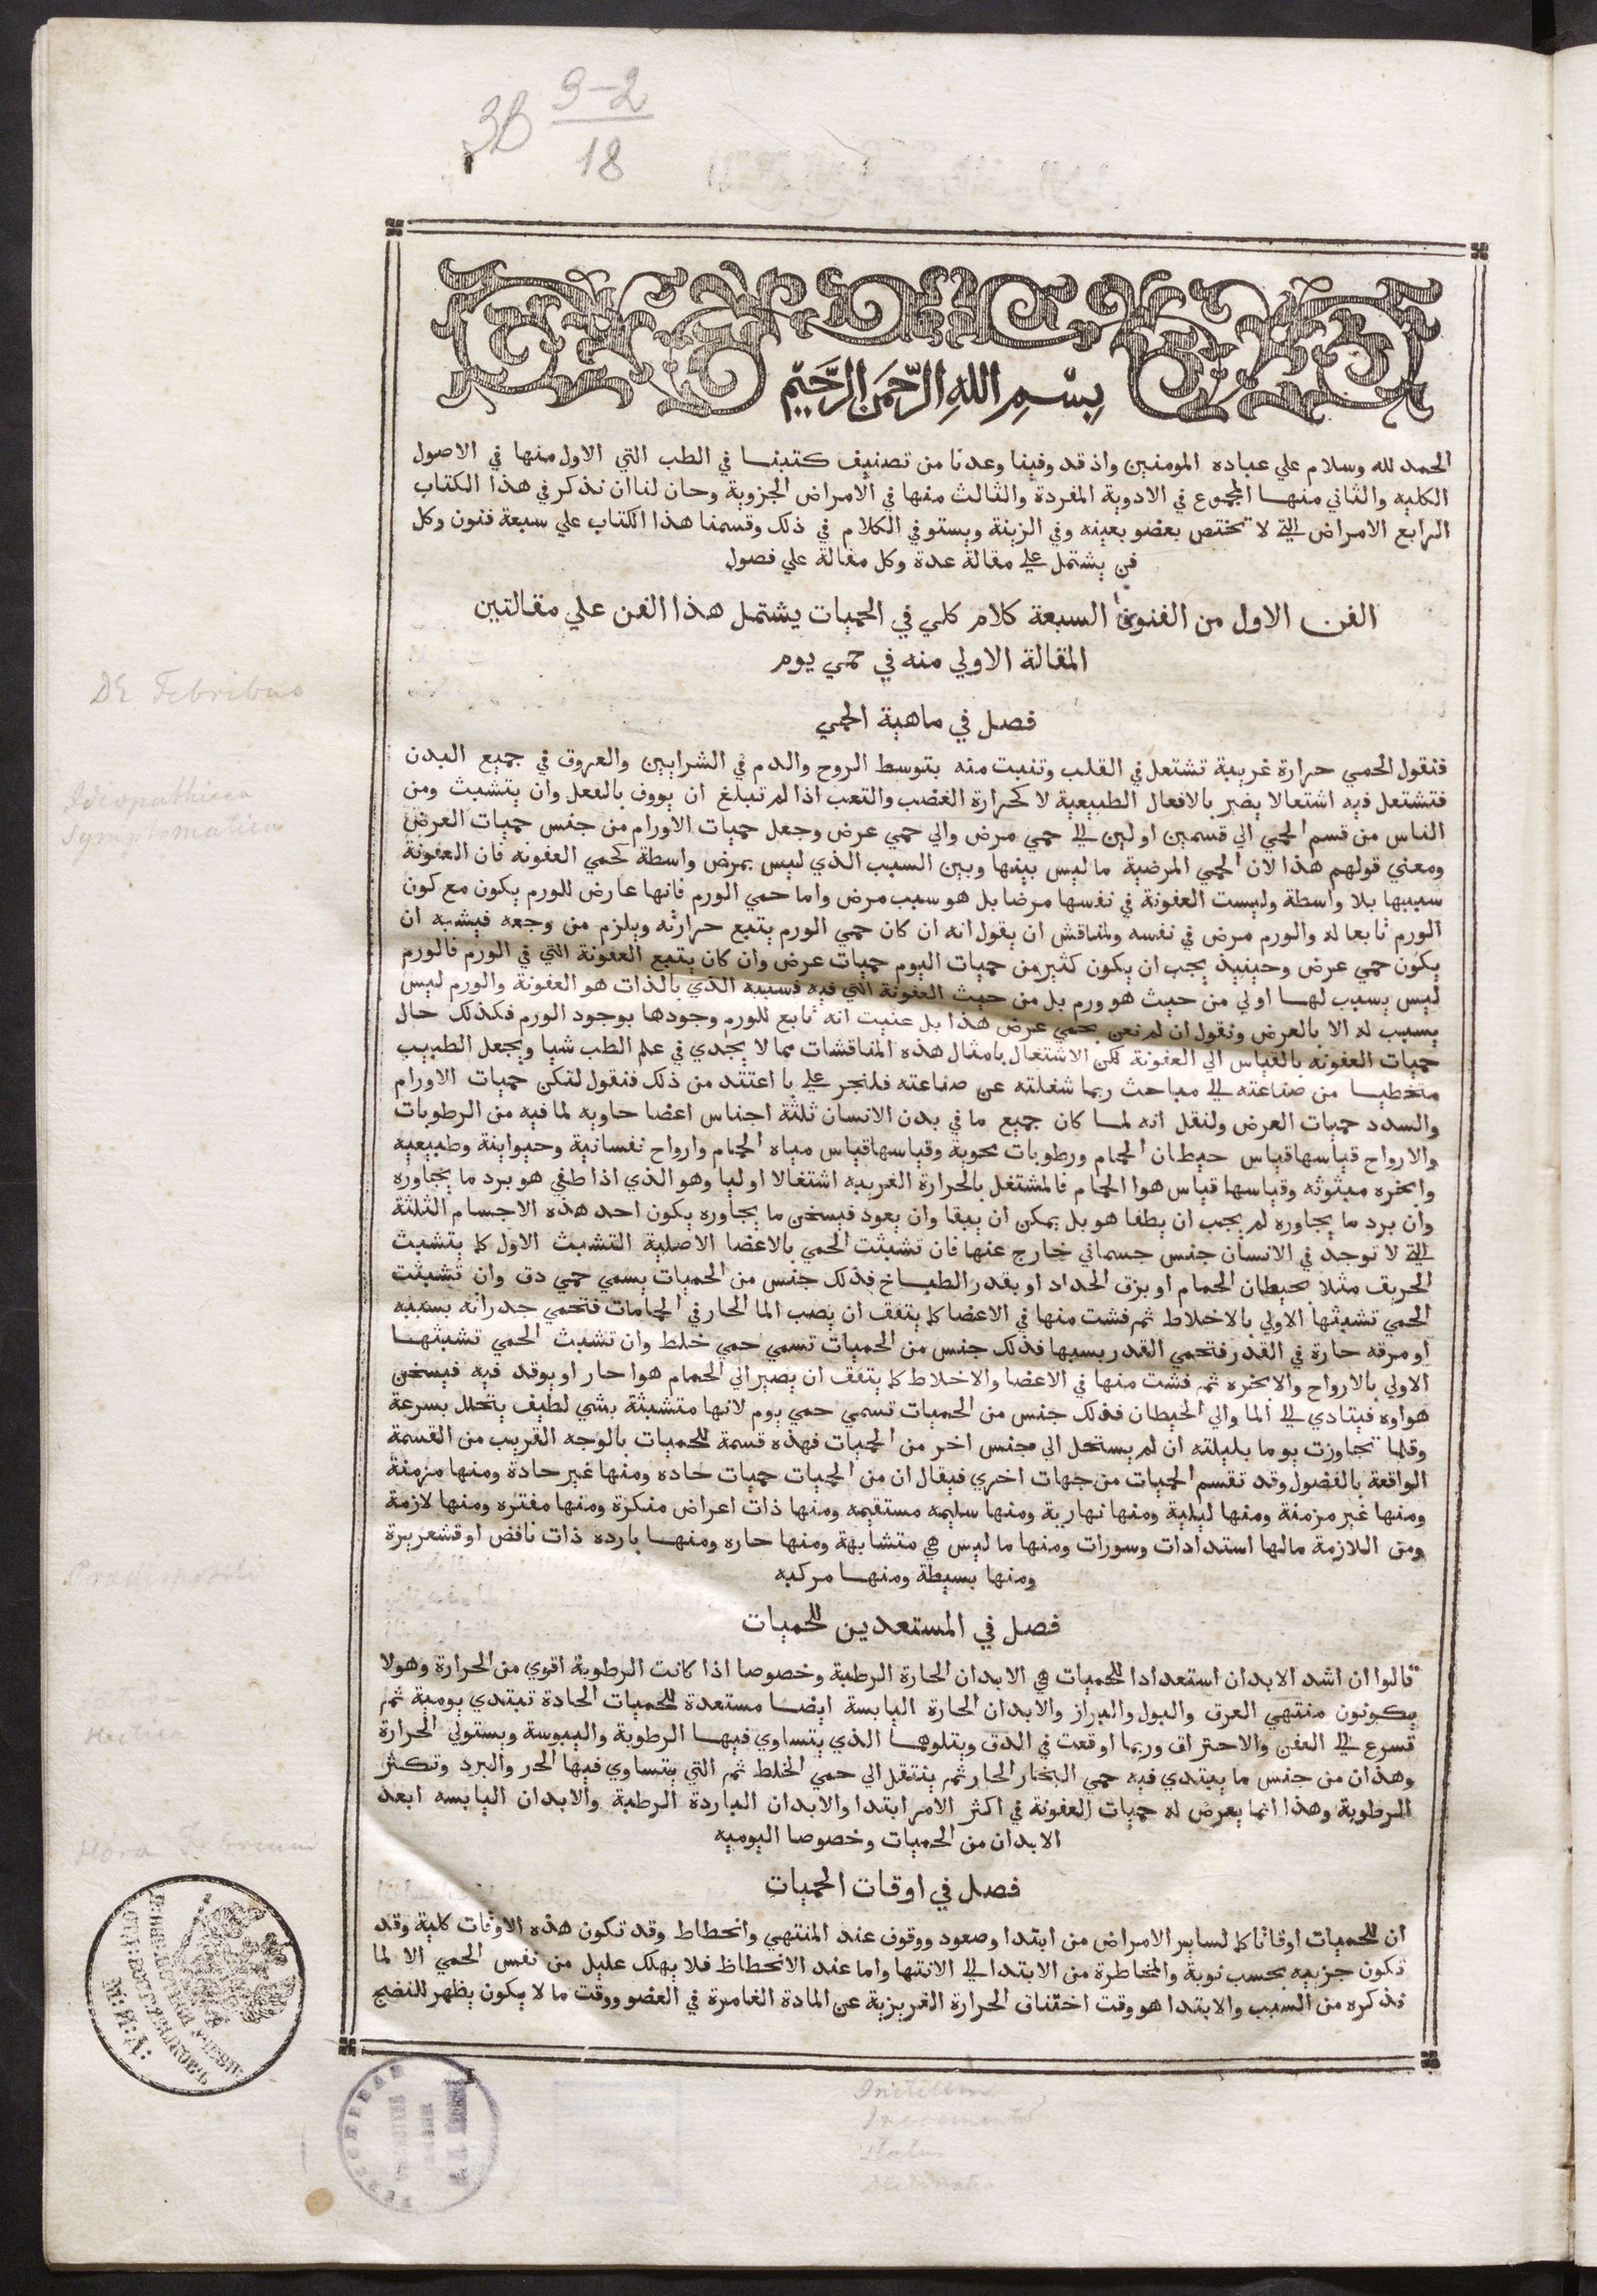 3B 9-2
18
بِسْمِ اللهِ الرَّحْمَنِ الرَّحِيمِ
الحمد لله وسلام علي عباده المومنين واذ قد وفينا وعدنا من تصنيف كتبنا في الطب التي الاول منها في الاصول
الكليه والثاني منها المجموع في الادوية المفردة والثالث منها في الامراض الجزوية وحان لنا ان نذكر في هذا الكتاب
الرابع الامراض التي لا تختص بعضو بعينه وفي الزينة ويستوفي الكلام في ذلك وقسمنا هذا الكتاب علي سبعة فنون وكل
فن يشتمل علي مقالة عدة وكل مقالة علي فصول
الفن الاول من الفنون السبعة كلام كلي في الحميات يشتمل هذا الفن علي مقالتين
المقالة الاولي منه في حمي يوم
De Febribus
فصل في ماهية الحمي
فنقول الحمي حرارة غريبة تشتعل في القلب وتنبت منه بتوسط الروح والدم في الشرايين والعروق في جميع البدن
فتشتعل فيه اشتعالا يضر بالافعال الطبيعية لا كحرارة الغضب والتعب اذا لم تبلغ ان يووف بالفعل وان يتشبث ومن
Idiopathica
Symptomatica
الناس من قسم الحمي الي قسمين اولين الي حمي مرض والي حمي عرض وجعل حميات الاورام من جنس حميات العرض
ومعني قولهم هذا لان الحمي المرضية ما ليس بينها وبين السبب الذي ليس بمرض واسطة كحمي العفونه فان العفونة
سببها بلا واسطة وليست العفونة في نفسها مرضا بل هو سبب مرض واما حمي الورم فانها عارض للورم يكون مع كون
الورم تابعا له والورم مرض في نفسه ولمناقش ان يقول انه ان كان حمي الورم يتبع حرارته ويلزم من وجعه فيشبه ان
يكون حمي عرض وحينيذ يجب ان يكون كثير من حميات اليوم حميات عرض وان كان يتبع العفونة التي في الورم فالورم
ليس بسبب لها اولي من حيث هو ورم بل من حيث العفونة التي فيه فسببه الذي بالذات هو العفونة والورم ليس
بسبب له الا بالعرض ونقول ان لم نعن بحمي عرض هذا بل عنيت انه تابع للورم وجودها بوجود الورم فكذلك حال
حميات العفونه بالقياس الي العفونة لكن الاشتغال بامثال هذه المناقشات مما لا يجدي في علم الطب شيا ويجعل الطبيب
متخطيا من صناعته الي مباحث ربما شغلته عن صناعته فلنجر علي با اعتتد من ذلك فنقول لتكن حميات الاورام
والسدد حميات العرض ولنقل انه لما كان جميع ما في بدن الانسان ثلثة اجناس اعضا حاويه لما فيه من الرطوبات
والارواح قياسها قياس حيطان الحمام ورطوبات محوية وقياسها قياس مياه الحمام وارواح نفسانية وحيوانية وطبيعيه
وابخره مبثوثه وقياسها قياس هوا الحمام فالمشتعل بالحرارة الغريبه اشتعالا اوليا وهو الذي اذا طفي هو برد ما يجاوره
وان برد ما يجاوره لم يجب ان يطفا هو بل يمكن ان يبقا وان يعود فيسخن ما يجاوره يكون احد هذه الاجسام الثلثة
التي لا توجد في الانسان جنس جسماني خارج عنها فان تشبثت الحمي بالاعضا الاصلية التشبث الاول كما يتشبث
الحريق مثلا بحيطان الحمام او بزق الحداد او بقدر الطباخ فذلك جنس من الحميات يسمي حمي دق وان تشبثت
الحمي تشبثها الاولي بالاخلاط ثم فشت منها في الاعضا كما يتفق ان يصب الما الحار في الحمامات فتحمي جدرانه بسببه
او مرقه حارة في القدر فتحمي القدر بسببها فذلك جنس من الحميات تسمي حمي خلط وان تشبث الحمي تشبثها
الاولي بالارواح والابخره ثم فشت منها في الاعضا والاخلاط كما يتفق ان يصير الي الحمام هوا حار او يوقد فيه فيسخن
هواوه فيتادي الي الما والي الحيطان فذلك جنس من الحميات تسمي حمي يوم لانها متشبثة بشي لطيف يتحلل بسرعة
وقلما تجاوزت يوما بليلته ان لم يستحل الي جنس اخر من الحميات فهذه قسمة للحميات بالوجه القريب من القسمة
الواقعة بالفصول وقد تقسم الحميات من جهات اخري فيقال ان من الحميات حميات حاده ومنها غير حادة ومنها مزمنة
ومنها غير مزمنة ومنها ليلية ومنها نهارية ومنها سليمه مستقيمه ومنها ذات اعراض منكرة ومنها مفتره ومنها لازمة
ومن اللازمة مالها استدادات وسورات ومنها ما ليس هي متشابهة ومنها حاره ومنها بارده ذات نافض او قشعريرة
ومنها بسيطة ومنها مركبه
فصل في المستعدين للحميات
قالوا ان اشد الابدان استعدادا للحميات هي الابدان الحارة الرطبة وخصوصا اذا كانت الرطوبة اقوي من الحرارة وهولا
يكونون منتهي العرق والبول والبراز والابدان الحارة اليابسة ايضا مستعدة للحميات الحادة تبتدي يومية ثم
Hectica
تسرع الي العفن والاحتراق وربما اوقعت في الدق ويتلوهما الذي يتساوي فيها الرطوبة واليبوسة ويستولي الحرارة
وهذان من جنس ما يبتدي فيه حمي البخار الحار ثم ينتقل الي حمي الخلط ثم التي يتساوي فيها الحر والبرد وتكثر
الرطوبة وهذا انما يعرض له حميات العفونة في اكثر الامر ابتدا والابدان الباردة الرطبة والابدان اليابسه ابعد
الابدان من الحميات وخصوصا اليوميه
فصل في اوقات الحميات
ان للحميات اوقاتا كما لساير الامراض من ابتدا وصعود ووقوف عند المنتهي وانحطاط وقد تكون هذه الاوقات كلية وقد
تكون جزييه بحسب نوبة والمخاطرة من الابتدا الي الانتها واما عند الانحطاظ فلا يهلك عليل من نفس الحمي الا لما
نذكره من السبب والابتدا هو وقت اختناق الحرارة الغريزية عن المادة الغامرة في العضو ووقت ما لا يكون يظهر للنضج
Incrementum
Status